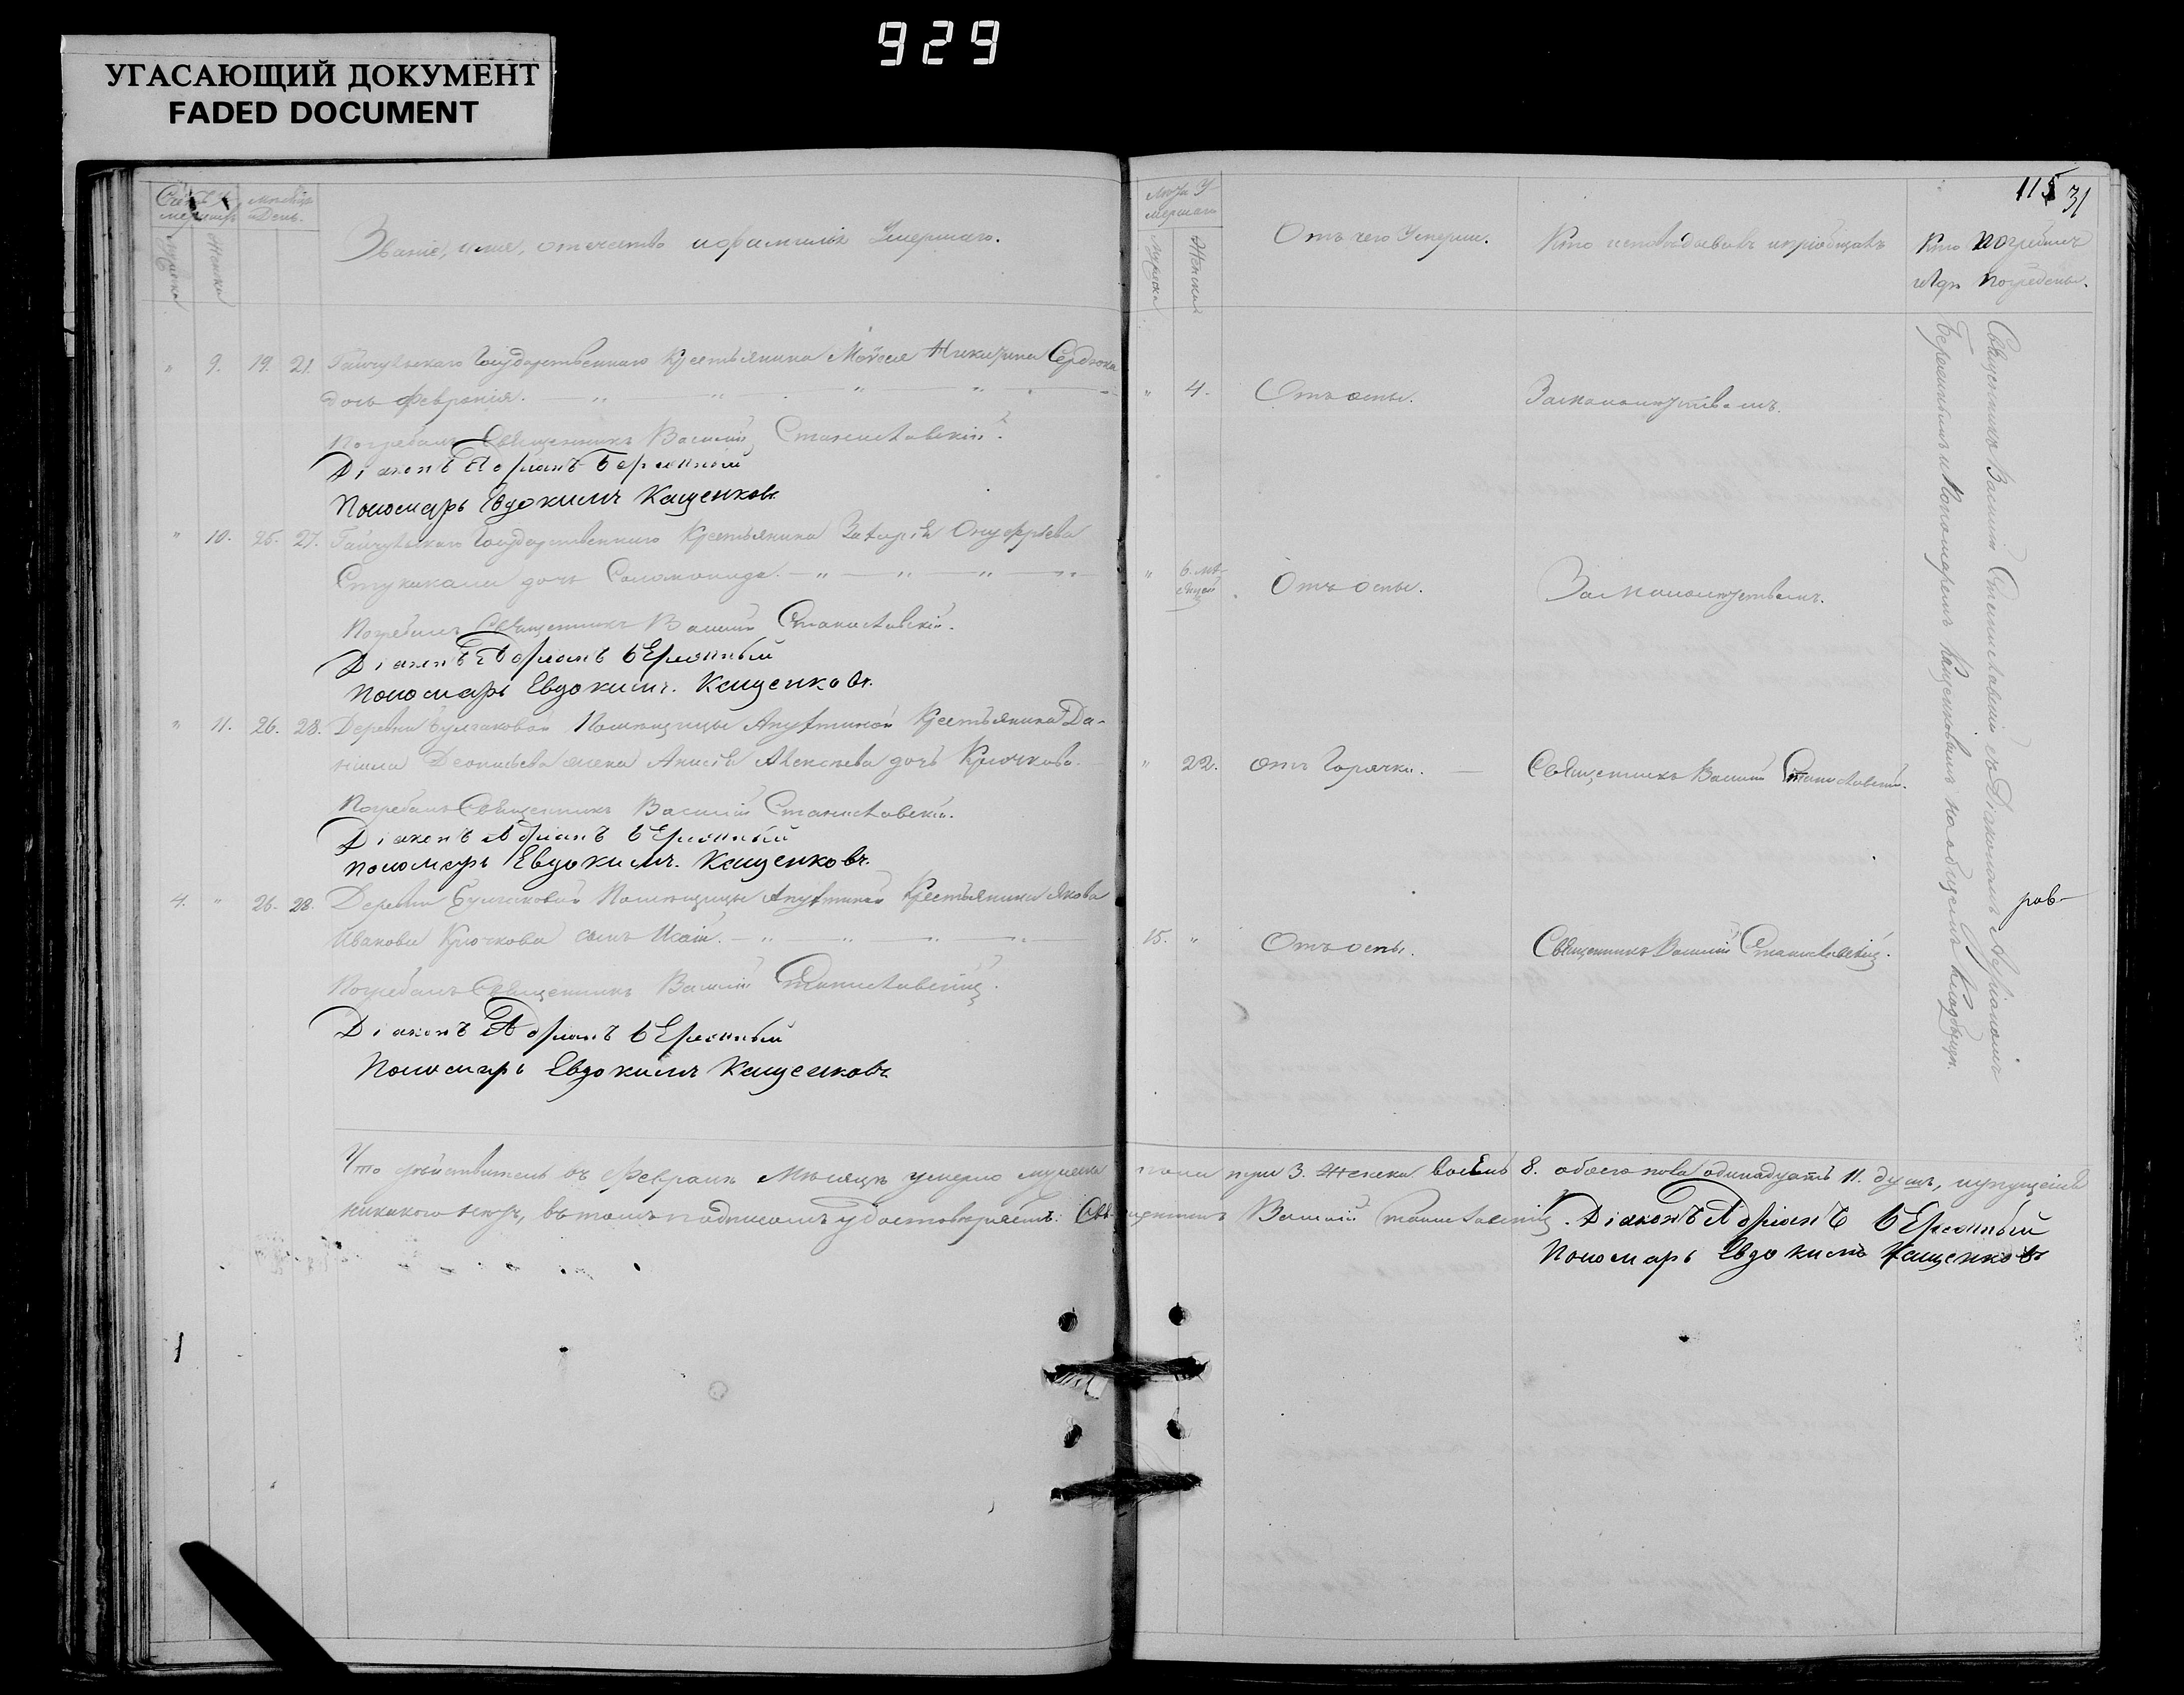 929
УГАСАЮЩИЙ ДОКУМЕНТ
FADED DOCUMENT
115 31
Званіе, имя, отечество и фамилія Умершаго.
Отъ чего Умерли.
Кто исповѣдывалъ и пріобщалъ
Кто погребалъ
и гдѣ погребены.
" 9. 19. 21. Государственнаго Крестьянина Моѵсея Никифорова Сердюка
дочь Февронія.
" 4. Отъ оспы. За малолѣтствомъ.
Погребалъ Священникъ Василій Станиславскій.
Діаконъ Адріанъ Бережный
Пономарь Евдокимъ Кащенковъ
" 10. 25. 27. Государственнаго Крестьянина Онуфріева
дочь Соломонида.
" 6. мѣсяцей Отъ оспы. За малолѣтствомъ.
Погребалъ Священникъ Василій Станиславскій.
Діаконъ Адріанъ Бережный
Пономарь Евдокимъ. Кащенковъ.
" 11. 26. 28. Деревни Помѣщицы Апухтиной Крестьянина Да-
нила Леонтьева жена Алексѣева дочь Крючкова.
" 22. Отъ Горячки. Священникъ Василій Станиславскій.
Погребалъ Священникъ Василій Станиславскій.
Діаконъ Адріанъ Бережный
Пономарь Евдокимъ. Кащенковъ.
4. " 26. 28. Деревни Помѣщицы Апухтиной Крестьянина Якова
Иванова Крючкова сынъ Исаія.
15. " Отъ оспы. Священникъ Василій Станиславскій.
Погребалъ Священникъ Василій Станиславскій.
Діаконъ Адріанъ Бережный
Пономарь Евдокимъ Кащенковъ
Священникъ Василій Станиславскій съ Діакономъ Адріаномъ
Бережнымъ и Пономаремъ Кащенковымъ на общемъ кладбищѣ.
Что дѣйствительно въ Февралѣ Мѣсяцѣ умерло мужеска пола три 3. Женска восемь 8. обоего пола одинадцать 11. душъ, и пущенія
никакого нѣтъ, въ томъ подписомъ удостовѣряемъ: Священникъ Василій Станиславскій. Діаконъ Адріанъ Бережный
Пономарь Евдокимъ Кащенковъ